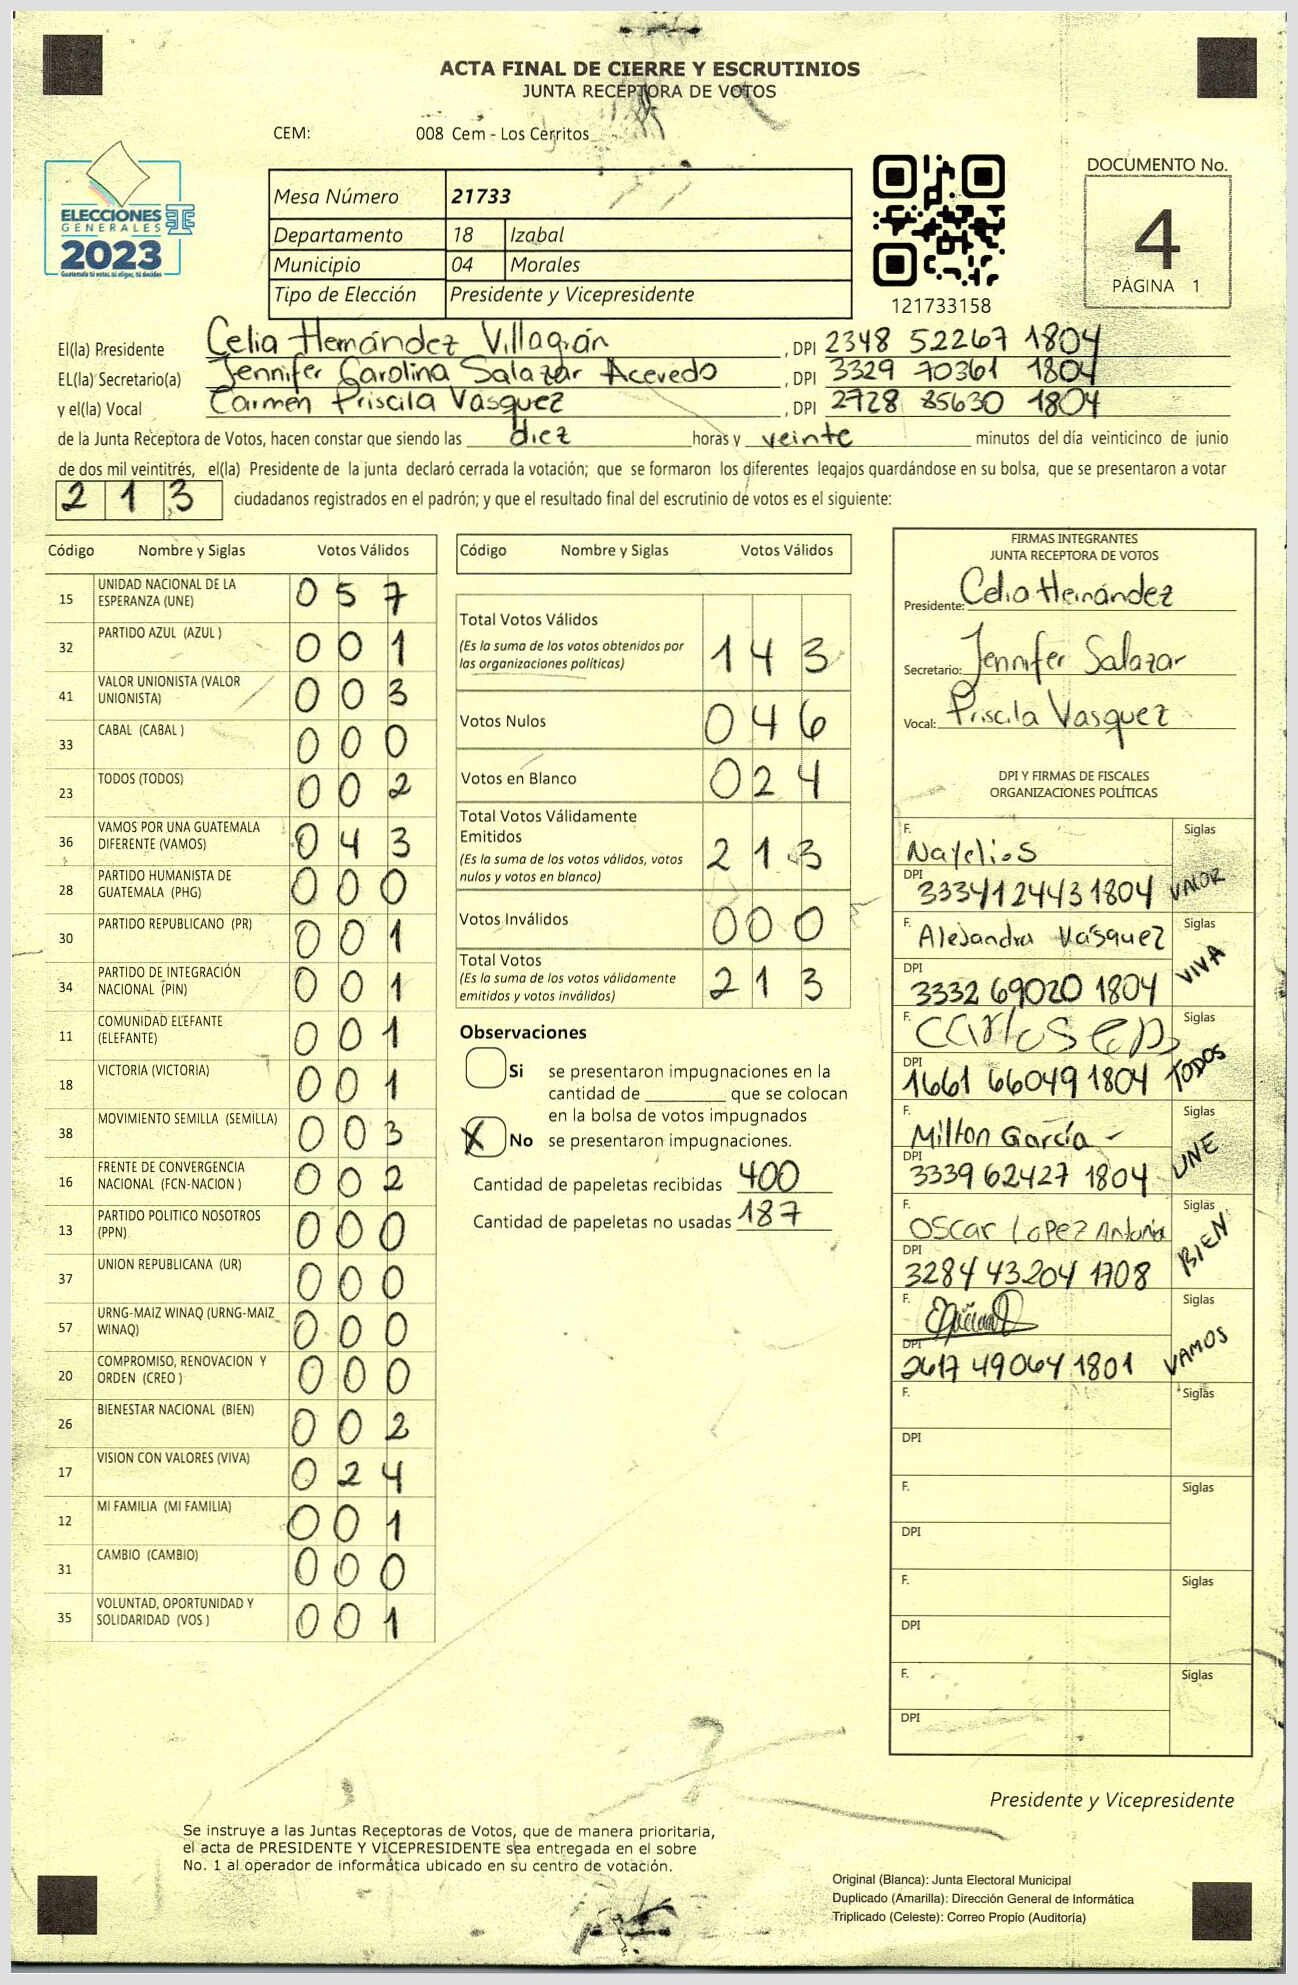 ACTA FINAL DE CIERRE Y ESCRUTINIOS
JUNTA RECEPTORA DE VOTOS
CEM: 008 Cem - Los Cerritos
ELECCIONES
GENERALES
2023
Guatemala tú votas, tú eliges, tú decides
Mesa Número 21733
Departamento 18 Izabal
Municipio 04 Morales
Tipo de Elección Presidente y Vicepresidente
121733158
DOCUMENTO No.
4
PÁGINA 1
El(la) Presidente Celia Hernández Villagrán , DPI 2348 52267 1804
EL(la) Secretario(a) Jennifer Carolina Salazar Acevedo , DPI 3329 70361 1804
y el(la) Vocal Carmen Priscila Vásquez , DPI 2728 85630 1804
de la Junta Receptora de Votos, hacen constar que siendo las diez horas y veinte minutos del día veinticinco de junio
de dos mil veintitrés, el(la) Presidente de la junta declaró cerrada la votación; que se formaron los diferentes legajos guardándose en su bolsa, que se presentaron a votar
213 ciudadanos registrados en el padrón; y que el resultado final del escrutinio de votos es el siguiente:
Código Nombre y Siglas Votos Válidos
15 UNIDAD NACIONAL DE LA ESPERANZA (UNE) 057
32 PARTIDO AZUL (AZUL ) 001
41 VALOR UNIONISTA (VALOR UNIONISTA) 003
33 CABAL (CABAL ) 000
23 TODOS (TODOS) 002
36 VAMOS POR UNA GUATEMALA DIFERENTE (VAMOS) 043
28 PARTIDO HUMANISTA DE GUATEMALA (PHG) 000
30 PARTIDO REPUBLICANO (PR) 001
34 PARTIDO DE INTEGRACIÓN NACIONAL (PIN) 001
11 COMUNIDAD ELEFANTE (ELEFANTE) 001
18 VICTORIA (VICTORIA) 001
38 MOVIMIENTO SEMILLA (SEMILLA) 003
16 FRENTE DE CONVERGENCIA NACIONAL (FCN-NACION ) 002
13 PARTIDO POLITICO NOSOTROS (PPN) 000
37 UNION REPUBLICANA (UR) 000
57 URNG-MAIZ WINAQ (URNG-MAIZ WINAQ) 000
20 COMPROMISO, RENOVACION Y ORDEN (CREO ) 000
26 BIENESTAR NACIONAL (BIEN) 002
17 VISION CON VALORES (VIVA) 024
12 MI FAMILIA (MI FAMILIA) 001
31 CAMBIO (CAMBIO) 000
35 VOLUNTAD, OPORTUNIDAD Y SOLIDARIDAD (VOS ) 001
Código Nombre y Siglas Votos Válidos
Total Votos Válidos 143
(Es la suma de los votos obtenidos por
las organizaciones políticas)
Votos Nulos 046
Votos en Blanco 024
Total Votos Válidamente
Emitidos 213
(Es la suma de los votos válidos, votos
nulos y votos en blanco)
Votos Inválidos 000
Total Votos 213
(Es la suma de los votos válidamente
emitidos y votos inválidos)
Observaciones
Si se presentaron impugnaciones en la
cantidad de ________ que se colocan
en la bolsa de votos impugnados
X No se presentaron impugnaciones.
Cantidad de papeletas recibidas 400
Cantidad de papeletas no usadas 187
FIRMAS INTEGRANTES
JUNTA RECEPTORA DE VOTOS
Presidente: Celia Hernández
Secretario: Jennifer Salazar
Vocal: Priscila Vasquez
DPI Y FIRMAS DE FISCALES
ORGANIZACIONES POLÍTICAS
F. Siglas
DPI 3334124431804 VALOR
F. Alejandra Vásquez Siglas
DPI 3332 69020 1804 VIVA
F. Carlos Siglas
DPI 1661 66049 1804 TODOS
F. Milton García Siglas
DPI 3339 62427 1804 UNE
F. Oscar Lopez Antonio Siglas
DPI 3284 43204 1708 BIEN
F. Siglas
DPI 2617 49064 1801 VAMOS
F. Siglas
DPI
F. Siglas
DPI
F. Siglas
DPI
F. Siglas
DPI
Presidente y Vicepresidente
Se instruye a las Juntas Receptoras de Votos, que de manera prioritaria,
el acta de PRESIDENTE Y VICEPRESIDENTE sea entregada en el sobre
No. 1 al operador de informática ubicado en su centro de votación.
Original (Blanca): Junta Electoral Municipal
Duplicado (Amarilla): Dirección General de Informática
Triplicado (Celeste): Correo Propio (Auditoría)